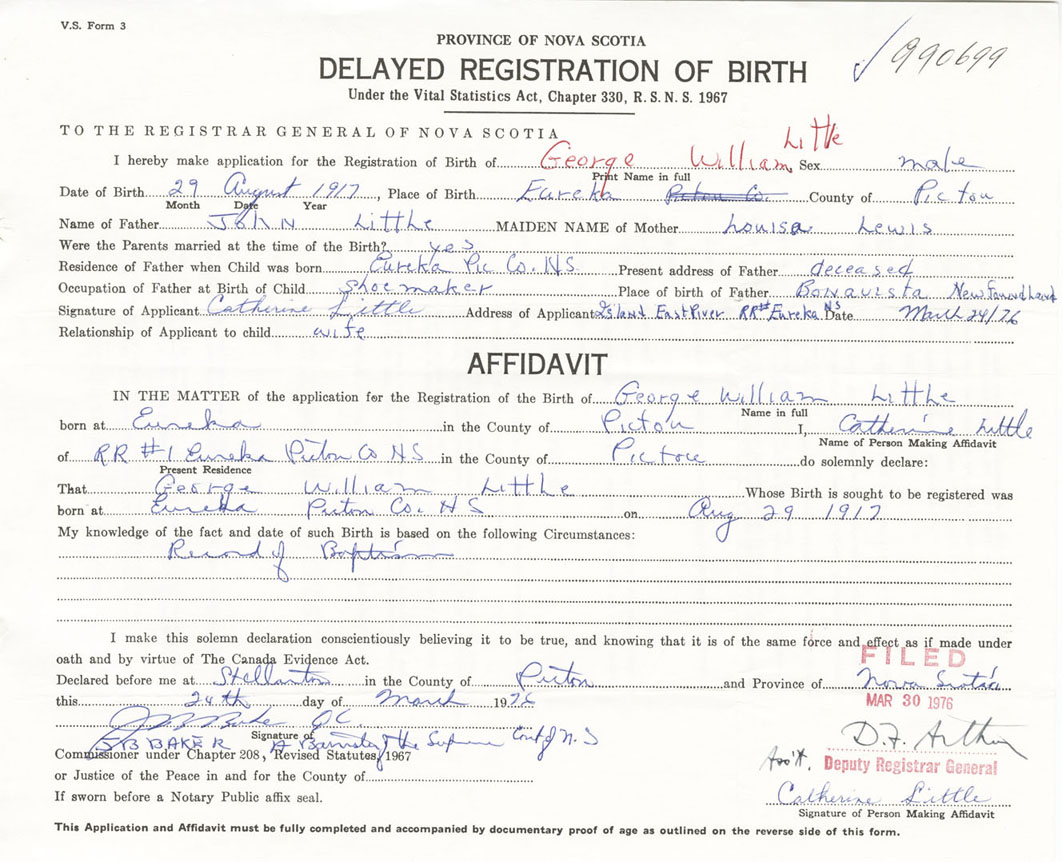 V.S. Form 3
990699
PROVINCE OF NOVA SCOTIA
DELAYED REGISTRATION OF BIRTH
Under the Vital Statistics Act, Chapter 330, R. S. N. S. 1967
TO THE REGISTRAR GENERAL OF NOVA SCOTIA
I hereby make application for the Registration of Birth of George William Little Sex male
Print Name in full
Date of Birth 29 August 1917, Place of Birth Eureka Picton Co. County of Picton
Month Date Year
Name of Father John Little MAIDEN NAME of Mother Louisa Lewis
Were the Parents married at the time of the Birth? yes
Residence of Father when Child was born Eureka Pic Co. N.S. Present address of Father deceased
Occupation of Father at Birth of Child shoemaker Place of birth of Father Bonavista Newfoundland
Signature of Applicant Catherine Little Address of Applicant Island East River RR# Eureka NS Date March 24/76
Relationship of Applicant to child wife
AFFIDAVIT
IN THE MATTER of the application for the Registration of the Birth of George William Little
Name in full
born at Eureka in the County of Picton I, Catherine Little
Name of Person Making Affidavit
of RR #1 Eureka Picton Co NS in the County of Pictou do solemnly declare:
Present Residence
That George William Little Whose Birth is sought to be registered was
born at Eureka Picton Co. NS on Aug 29 1917
My knowledge of the fact and date of such Birth is based on the following Circumstances:
Record of Baptism
I make this solemn declaration conscientiously believing it to be true, and knowing that it is of the same force and effect as if made under
oath and by virtue of The Canada Evidence Act.
FILED
Declared before me at Stellarton in the County of Picton and Province of Nova Scotia
this 24th day of March 1976
MAR 30 1976
J B Baker Q.C.
Signature of
J B BAKER A Barrister of the Supreme Court of N.S
D.F. Arthur
Commissioner under Chapter 208, Revised Statutes, 1967
Ass't. Deputy Registrar General
or Justice of the Peace in and for the County of
If sworn before a Notary Public affix seal.
Catherine Little
Signature of Person Making Affidavit
This Application and Affidavit must be fully completed and accompanied by documentary proof of age as outlined on the reverse side of this form.